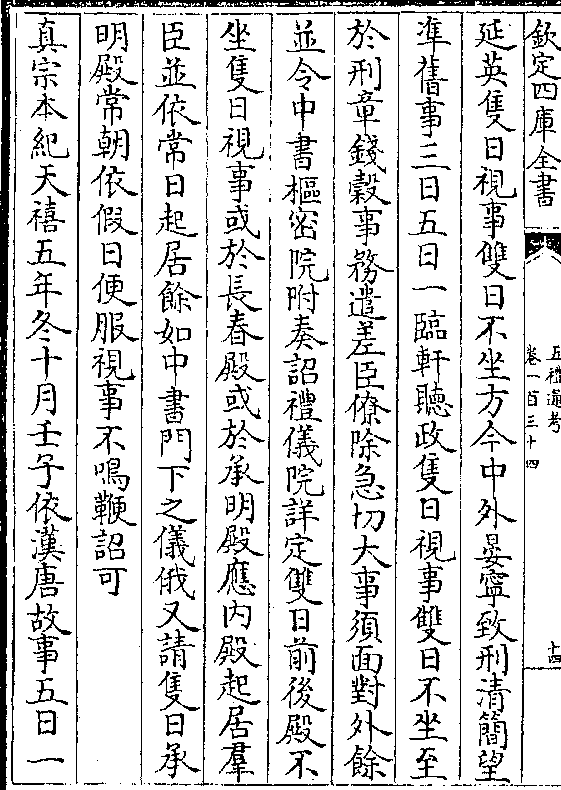 欽定四庫全書
五禮通考
卷一百三十四
十四
延英隻日視事雙日不坐方今中外晏寧致刑清簡望
準舊事三日五日一臨軒聽政隻日視事雙日不坐至
於刑章錢穀事務遣差臣僚除急切大事須面對外餘
並令中書樞密院附奏詔禮儀院詳定雙日前後殿不
坐隻日視事或於長春殿或於承明殿應内殿起居羣
臣並依常日起居餘如中書門下之儀俄又請隻日承
明殿常朝依假日便服視事不鳴鞭詔可
真宗本紀天禧五年冬十月壬子依漢唐故事五日一